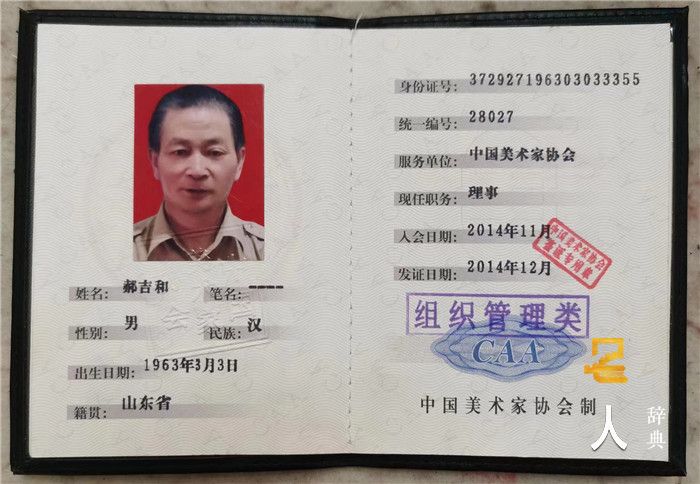 姓名：郝吉和 笔名：----
性别：男 民族：汉
出生日期：1963年3月3日
籍贯：山东省
身份证号：372927196303033355
统一编号：28027
服务单位：中国美术家协会
现任职务：理事
入会日期：2014年11月
发证日期：2014年12月
中国美术家协会
组织管理类
CAA
中国美术家协会制
人 辞典